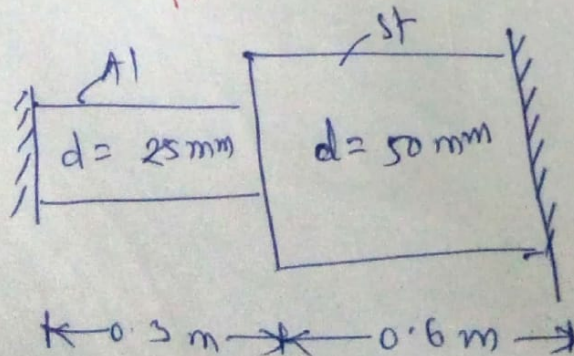 Al
St
d = 25 mm
d = 50 mm
0.3 m
0.6 m